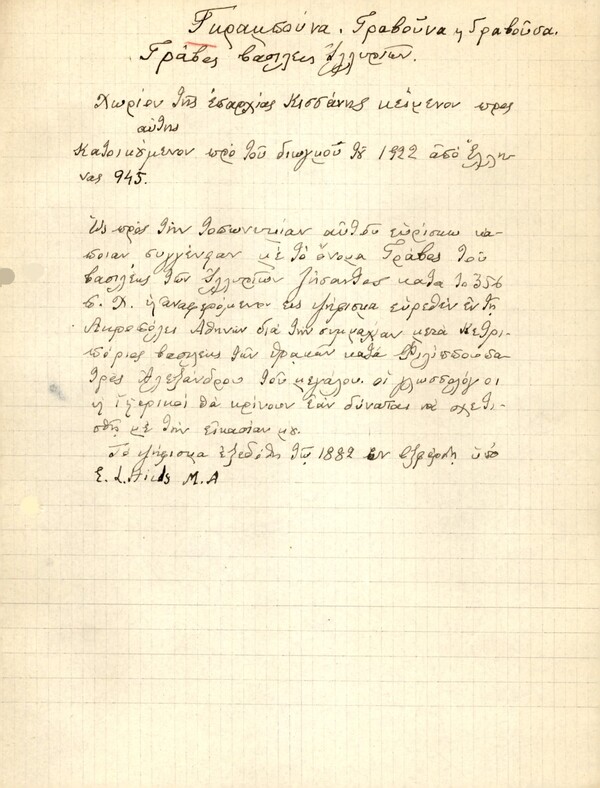 Γκραμπούνα. Γραβοῦνα ἡ Γραβοῦσα.
Γράβος βασιλεὺς Ἰλλυριῶν.
Χωρίον τῆς ἐπαρχίας Κεσσάνης κείμενον πρὸς
αὐτῆς
κατοικούμενον πρὸ τοῦ διωγμοῦ τοῦ 1922 ἀπὸ Ἕλλη-
νας 945.
Ὡς πρὸς τὴν τοπωνυμίαν αὐτοῦ εὑρίσκω κά-
ποιαν συγγένειαν μὲ τὸ ὄνομα Γράβος τοῦ
βασιλέως τῶν Ἰλλυριῶν ζήσαντος κατὰ τὸ 356
π. Χ. ἡ ἀναφερόμενον εἰς ψήφισμα εὑρεθὲν ἐν τῇ
Ἀκροπόλει Ἀθηνῶν διὰ τὴν συμμαχίαν μετὰ Κετρι-
πόριος βασιλέως τῶν Θρακῶν κατὰ Φιλίππου πα-
τρὸς Ἀλεξάνδρου τοῦ μεγάλου. οἱ γλωσσολόγοι
ἢ ἱστορικοὶ θὰ κρίνουν ἐὰν δύναται νὰ σχετι-
σθῇ μὲ τὴν εἰκασίαν μου.
Τὸ ψήφισμα ἐξεδόθη τῷ 1882 ἐν Ὀξφόρδῃ ὑπὸ
E. L. Hicks M. A